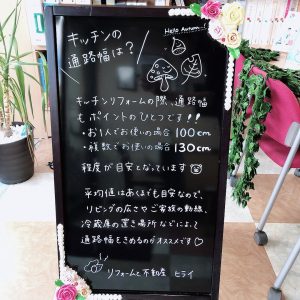 Hello Autumn...!
キッチンの
通路幅は？
キッチンリフォームの際、通路幅
もポイントのひとつです!!
・お1人でお使いの場合 100cm
・複数でお使いの場合 130cm
程度が目安となっています
平均値はあくまでも目安なので、
リビングの広さやご家族の動線、
冷蔵庫の置き場所などによって
通路幅をきめるのがオススメです♡
リフォームと不動産 ヒライ